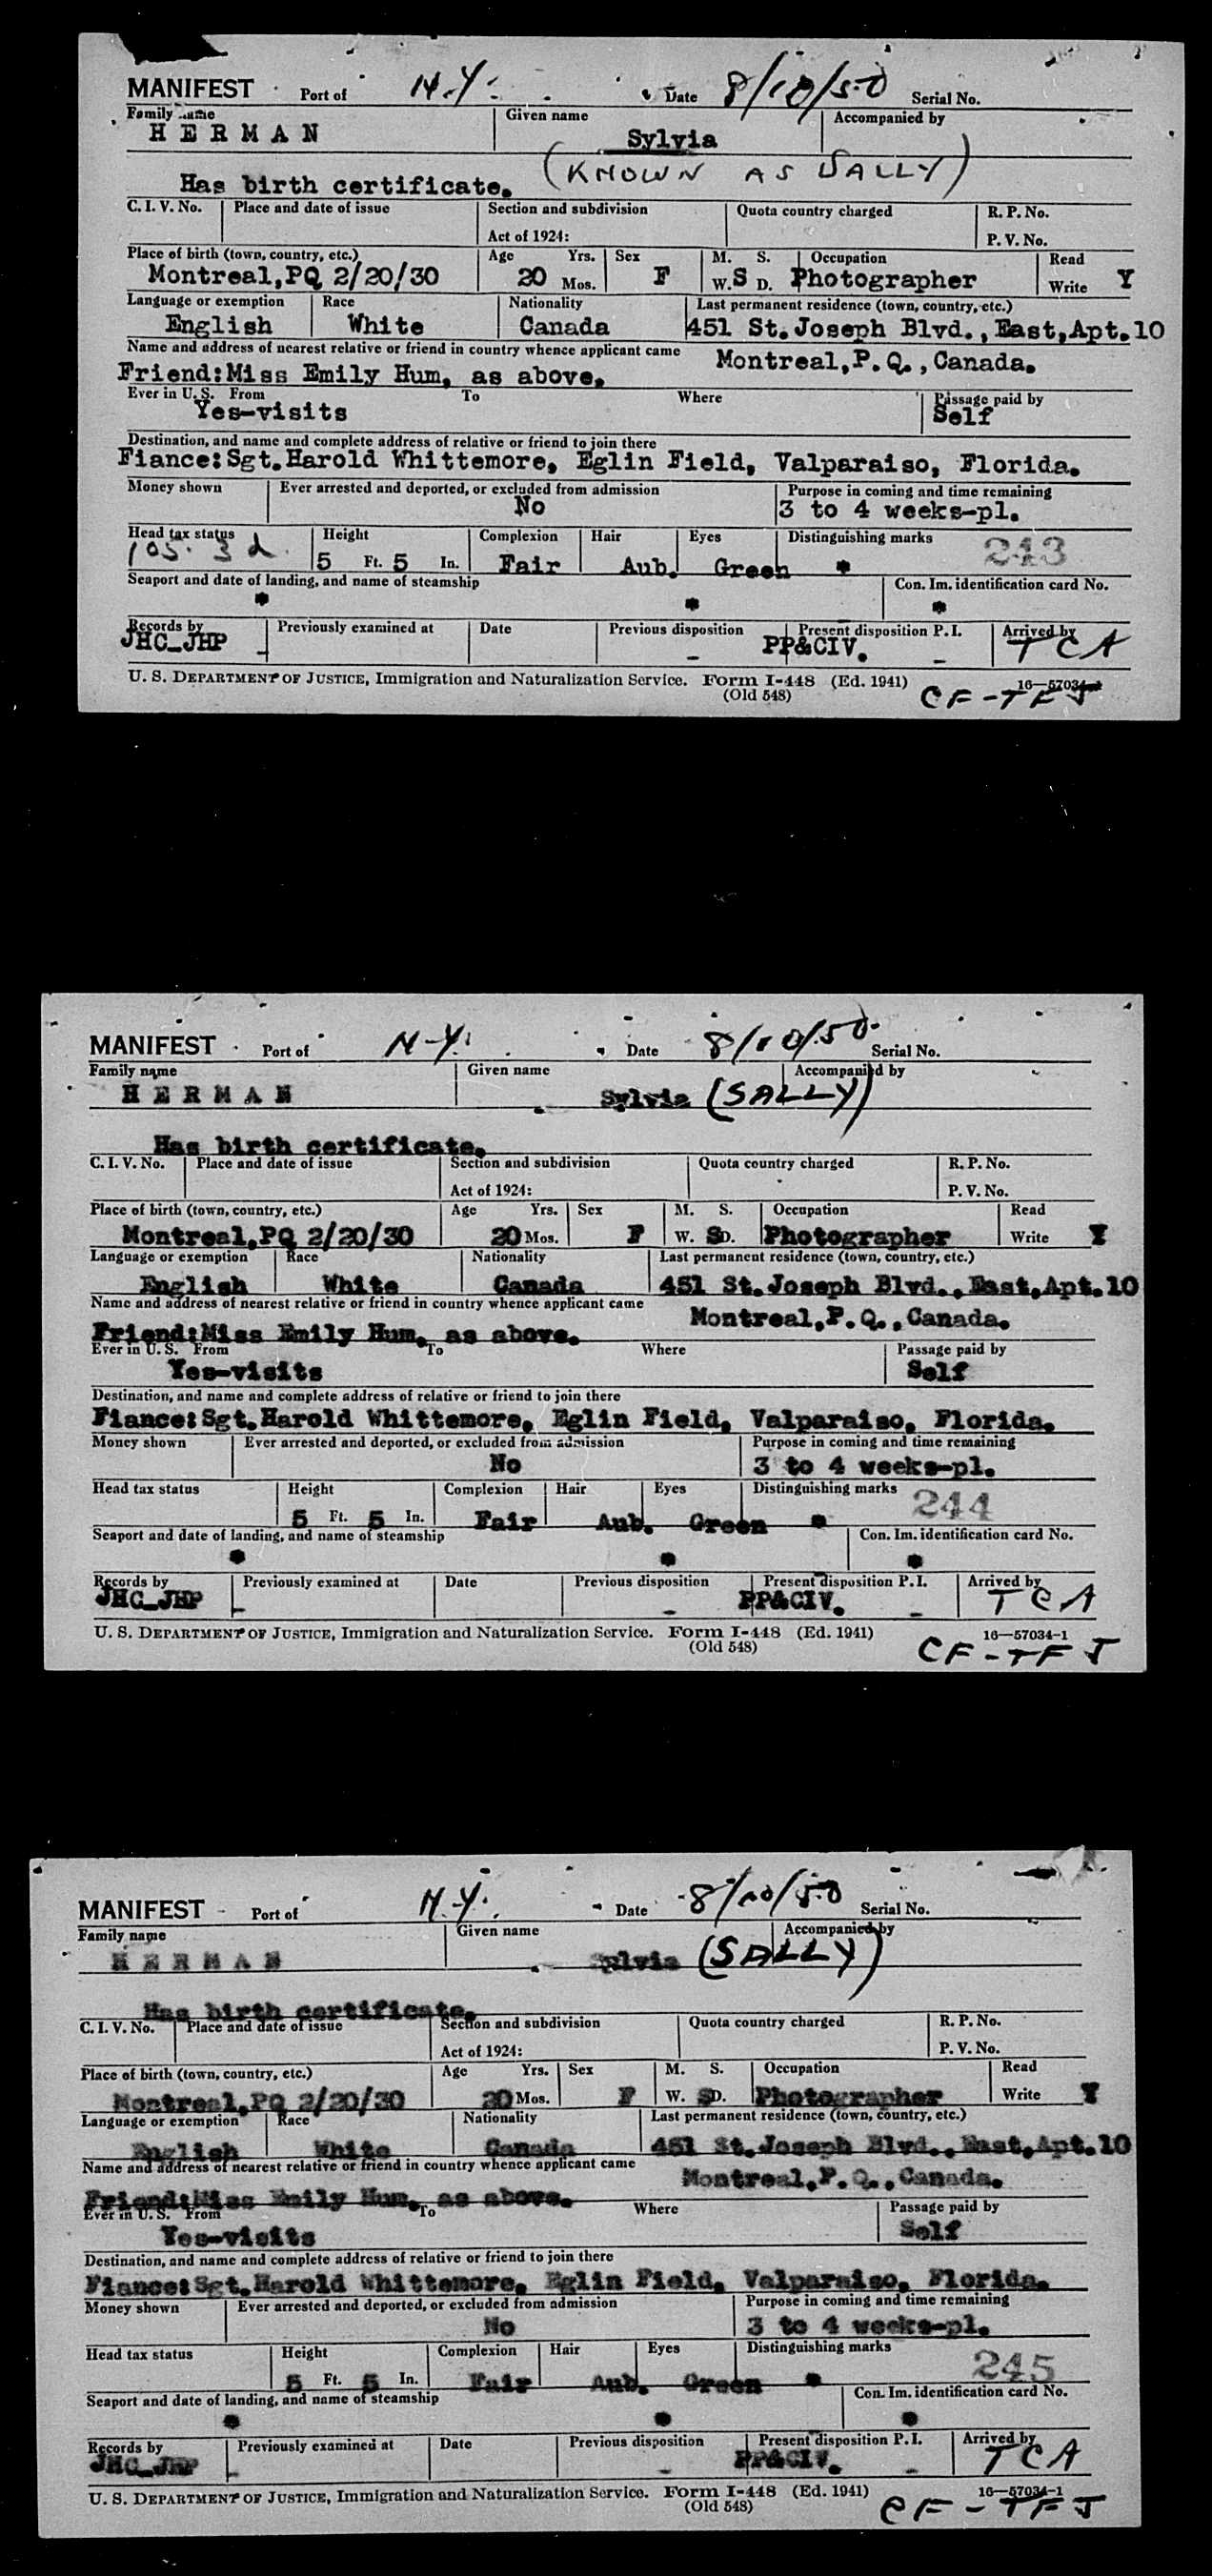 MANIFEST Port of N.Y. Date 8/10/50 Serial No.
Family name Given name Accompanied by
HERMAN Sylvia
Has birth certificate. (KNOWN AS SALLY)
C. I. V. No. Place and date of issue Section and subdivision Quota country charged R. P. No.
Act of 1924: P. V. No.
Place of birth (town, country, etc.) Age Yrs. Sex M. S. Occupation Read
Montreal,PQ 2/20/30 20 Mos. F W. S D. Photographer Write Y
Language or exemption Race Nationality Last permanent residence (town, country, etc.)
English White Canada 451 St.Joseph Blvd.,East,Apt.10
Name and address of nearest relative or friend in country whence applicant came Montreal,P.Q.,Canada.
Friend:Miss Emily Hum, as above.
Ever in U. S. From To Where Passage paid by
Yes-visits Self
Destination, and name and complete address of relative or friend to join there
Fiance:Sgt.Harold Whittemore, Eglin Field, Valparaiso, Florida.
Money shown Ever arrested and deported, or excluded from admission Purpose in coming and time remaining
No 3 to 4 weeks-pl.
Head tax status Height Complexion Hair Eyes Distinguishing marks 243
105.3 d. 5 Ft. 5 In. Fair Aub. Green
Seaport and date of landing, and name of steamship Con. Im. identification card No.
Records by Previously examined at Date Previous disposition Present disposition P. I. Arrived by
JHC_JHP - - PP&CIV. - TCA
U. S. DEPARTMENT OF JUSTICE, Immigration and Naturalization Service. Form I-448 (Ed. 1941) 16—57034-1
(Old 548) CF-TFJ
MANIFEST Port of N.Y. Date 8/10/50 Serial No.
Family name Given name Accompanied by
HERMAN Sylvia (SALLY)
Has birth certificate.
C. I. V. No. Place and date of issue Section and subdivision Quota country charged R. P. No.
Act of 1924: P. V. No.
Place of birth (town, country, etc.) Age Yrs. Sex M. S. Occupation Read
Montreal,PQ 2/20/30 20 Mos. F W. S D. Photographer Write Y
Language or exemption Race Nationality Last permanent residence (town, country, etc.)
English White Canada 451 St.Joseph Blvd.,East,Apt.10
Name and address of nearest relative or friend in country whence applicant came Montreal,P.Q.,Canada.
Friend:Miss Emily Hum, as above.
Ever in U. S. From To Where Passage paid by
Yes-visits Self
Destination, and name and complete address of relative or friend to join there
Fiance:Sgt.Harold Whittemore, Eglin Field, Valparaiso, Florida.
Money shown Ever arrested and deported, or excluded from admission Purpose in coming and time remaining
No 3 to 4 weeks-pl.
Head tax status Height Complexion Hair Eyes Distinguishing marks 244
5 Ft. 5 In. Fair Aub. Green
Seaport and date of landing, and name of steamship Con. Im. identification card No.
Records by Previously examined at Date Previous disposition Present disposition P. I. Arrived by
JHC_JHP - - PP&CIV. - TCA
U. S. DEPARTMENT OF JUSTICE, Immigration and Naturalization Service. Form I-448 (Ed. 1941) 16—57034-1
(Old 548) CF-TFJ
MANIFEST Port of N.Y. Date 8/10/50 Serial No.
Family name Given name Accompanied by
HERMAN Sylvia (SALLY)
Has birth certificate.
C. I. V. No. Place and date of issue Section and subdivision Quota country charged R. P. No.
Act of 1924: P. V. No.
Place of birth (town, country, etc.) Age Yrs. Sex M. S. Occupation Read
Montreal,PQ 2/20/30 20 Mos. F W. S D. Photographer Write Y
Language or exemption Race Nationality Last permanent residence (town, country, etc.)
English White Canada 451 St.Joseph Blvd.,East,Apt.10
Name and address of nearest relative or friend in country whence applicant came Montreal,P.Q.,Canada.
Friend:Miss Emily Hum, as above.
Ever in U. S. From To Where Passage paid by
Yes-visits Self
Destination, and name and complete address of relative or friend to join there
Fiance:Sgt.Harold Whittemore, Eglin Field, Valparaiso, Florida.
Money shown Ever arrested and deported, or excluded from admission Purpose in coming and time remaining
No 3 to 4 weeks-pl.
Head tax status Height Complexion Hair Eyes Distinguishing marks 245
5 Ft. 5 In. Fair Aub. Green
Seaport and date of landing, and name of steamship Con. Im. identification card No.
Records by Previously examined at Date Previous disposition Present disposition P. I. Arrived by
JHC_JHP - - PP&CIV. - TCA
U. S. DEPARTMENT OF JUSTICE, Immigration and Naturalization Service. Form I-448 (Ed. 1941) 16—57034-1
(Old 548) CF-TFJ